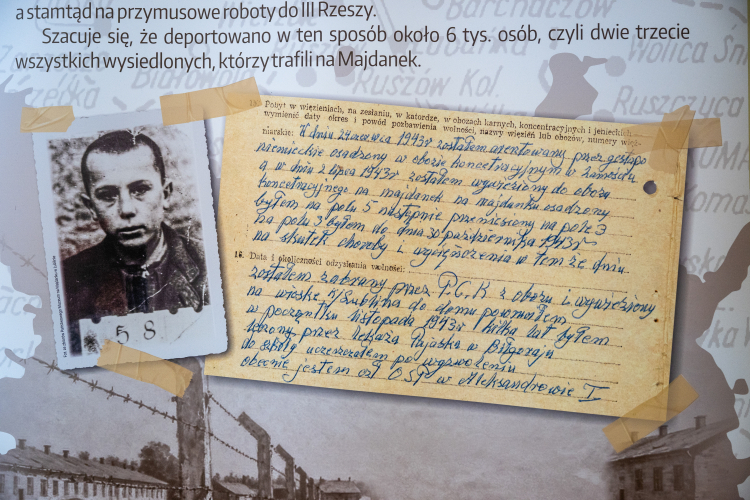 a stamtąd na przymusowe roboty do III Rzeszy.
Szacuje się, że deportowano w ten sposób około 6 tys. osób, czyli dwie trzecie
wszystkich wysiedlonych, którzy trafili na Majdanek.
15. Pobyt w więzieniach, na zesłaniu, w katordze, w obozach karnych, koncentracyjnych i jenieckich—
wymienić daty okres i powód pozbawienia wolności, nazwy więzień lub obozów, numery więź-
niarskie: W dniu 24 czerwca 1943r zostałem arentowany przez gestapo
niemieckie osadzony w obozie koncetracyjnym w Zamościu
a w dniu 2 lipca 1943r zostałem wywieziony do obozu
koncetracyjnego na majdanek na majdanku osadzony
byłem na polu 5 następnie przeniesiony na pole 3
na polu 3 byłem do dnia 30 października 1943r
na skutek choroby i wycięńczenia w tem że dniu.
16. Data i okoliczności odzyskania wolności:
zostałem zabrany przez P.C.K z obozu i wywieziony
na wioskę k/Lublina do domu powróciłem
w początku listopada 1943r kilka lat byłem
leczony przez lekarza Pojaska w Biłgoraju
do szkoły uczęszczałem po wyzwoleniu
obecnie jestem czł OSP w Aleksandrowie I
58
Chaczów
Białowola
Wolica Śni
Ruszów Kol.
Ruszczyzna